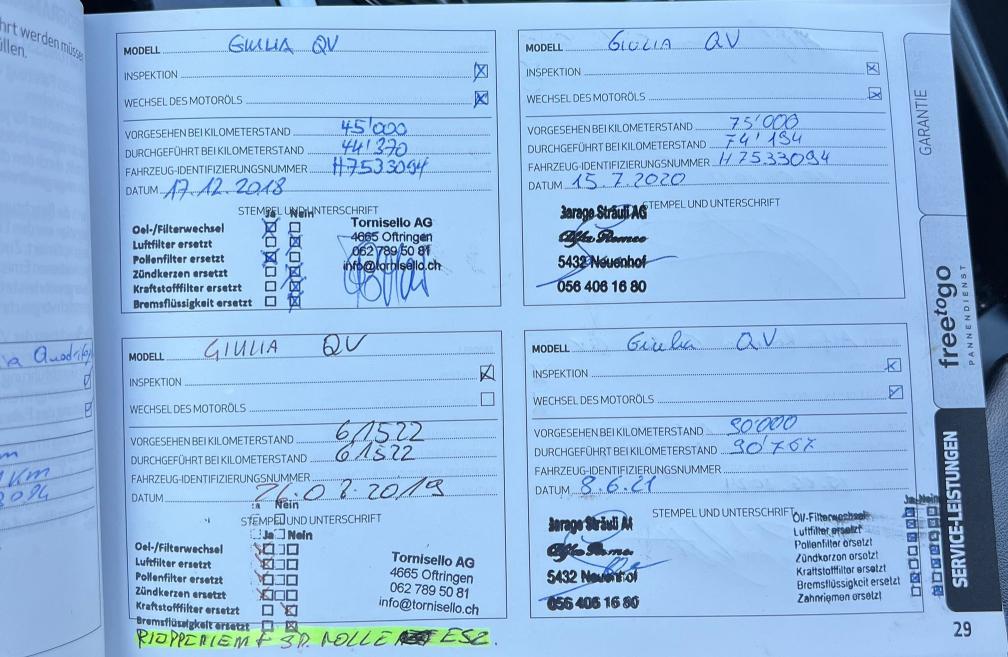 hrt werden müsse
llen.
MODELL GIULIA QV
INSPEKTION
WECHSEL DES MOTORÖLS
VORGESEHEN BEI KILOMETERSTAND 45'000
DURCHGEFÜHRT BEI KILOMETERSTAND 44'370
FAHRZEUG-IDENTIFIZIERUNGSNUMMER H7533094
DATUM 17.12.2018
STEMPEL UND UNTERSCHRIFT
Ja Nein
Oel-/Filterwechsel
Luftfilter ersetzt
Pollenfilter ersetzt
Zündkerzen ersetzt
Kraftstofffilter ersetzt
Bremsflüssigkeit ersetzt
Tornisello AG
4665 Oftringen
062 789 50 81
info@tornisello.ch
MODELL GIULIA QV
INSPEKTION
WECHSEL DES MOTORÖLS
VORGESEHEN BEI KILOMETERSTAND 75'000
DURCHGEFÜHRT BEI KILOMETERSTAND 74'194
FAHRZEUG-IDENTIFIZIERUNGSNUMMER H7533094
DATUM 15.7.2020
STEMPEL UND UNTERSCHRIFT
Garage Sträuli AG
Alfa Romeo
5432 Neuenhof
056 406 16 80
MODELL GIULIA QV
INSPEKTION
WECHSEL DES MOTORÖLS
VORGESEHEN BEI KILOMETERSTAND 61522
DURCHGEFÜHRT BEI KILOMETERSTAND 61522
FAHRZEUG-IDENTIFIZIERUNGSNUMMER
DATUM 26.08.2019
Nein
STEMPEL UND UNTERSCHRIFT
Ja Nein
Oel-/Filterwechsel
Luftfilter ersetzt
Pollenfilter ersetzt
Zündkerzen ersetzt
Kraftstofffilter ersetzt
Bremsflüssigkeit ersetzt
Tornisello AG
4665 Oftringen
062 789 50 81
info@tornisello.ch
ROLLE ESZ.
MODELL Giulia QV
INSPEKTION
WECHSEL DES MOTORÖLS
VORGESEHEN BEI KILOMETERSTAND 90'000
DURCHGEFÜHRT BEI KILOMETERSTAND 90'767
FAHRZEUG-IDENTIFIZIERUNGSNUMMER
DATUM 8.6.21
STEMPEL UND UNTERSCHRIFT
Garage Sträuli AG
Alfa Romeo
5432 Neuenhof
056 406 16 80
Ja Nein
Öl-/Filterwechsel
Luftfilter ersetzt
Pollenfilter ersetzt
Zündkerzen ersetzt
Kraftstofffilter ersetzt
Bremsflüssigkeit ersetzt
Zahnriemen ersetzt
GARANTIE
freetogo
PANNENDIENST
SERVICE-LEISTUNGEN
29